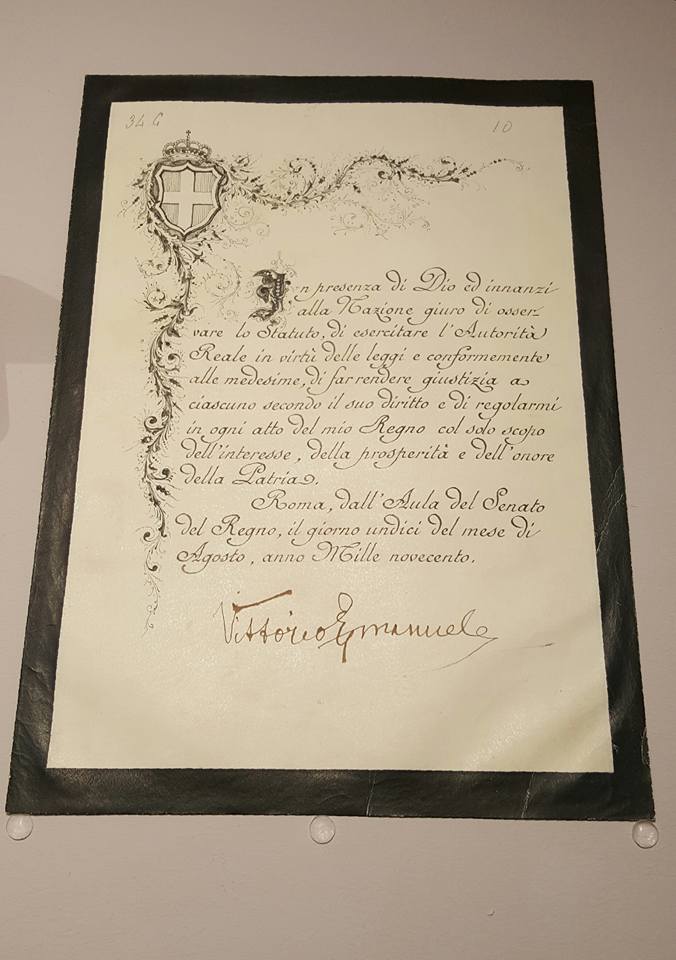 34 G
10
In presenza di Dio ed innanzi
alla Nazione giuro di osser-
vare lo Statuto, di esercitare l'Autorità
Reale in virtù delle leggi e conformemente
alle medesime, di far rendere giustizia a
ciascuno secondo il suo diritto e di regolarmi
in ogni atto del mio Regno col solo scopo
dell'interesse, della prosperità e dell'onore
della Patria.
Roma, dall'Aula del Senato
del Regno, il giorno undici del mese di
Agosto, anno Mille novecento.
Vittorio Emanuele